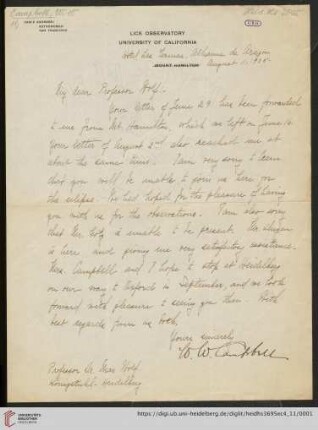 Campbell, W. W.
LICK OBSERVATORY
UNIVERSITY OF CALIFORNIA
MOUNT HAMILTON
Hotel Las Termas, Alhama de Aragon
August 11, 1905
My dear Professor Wolf:
Your letter of June 29 has been forwarded
to me from Mt. Hamilton, which we left on June
Your letter of August 2nd also reached me at
about the same time. I am very sorry to learn
that you will be unable to join us here for
the eclipse. We had hoped for the pleasure of having
you with us for the observations. I am also sorry
that Mr. Götz is unable to be present.
is here and giving me very satisfactory assistance.
Mrs. Campbell and I hope to stop at Heidelberg
on our way to in September, and we look
forward with pleasure to seeing you then. With
best regards from us both,
Yours sincerely
W. W. Campbell
Professor Dr. Max Wolf
Königstuhl - Heidelberg
https://digi.ub.uni-heidelberg.de/diglit/heidhs3695ec4_11/0001